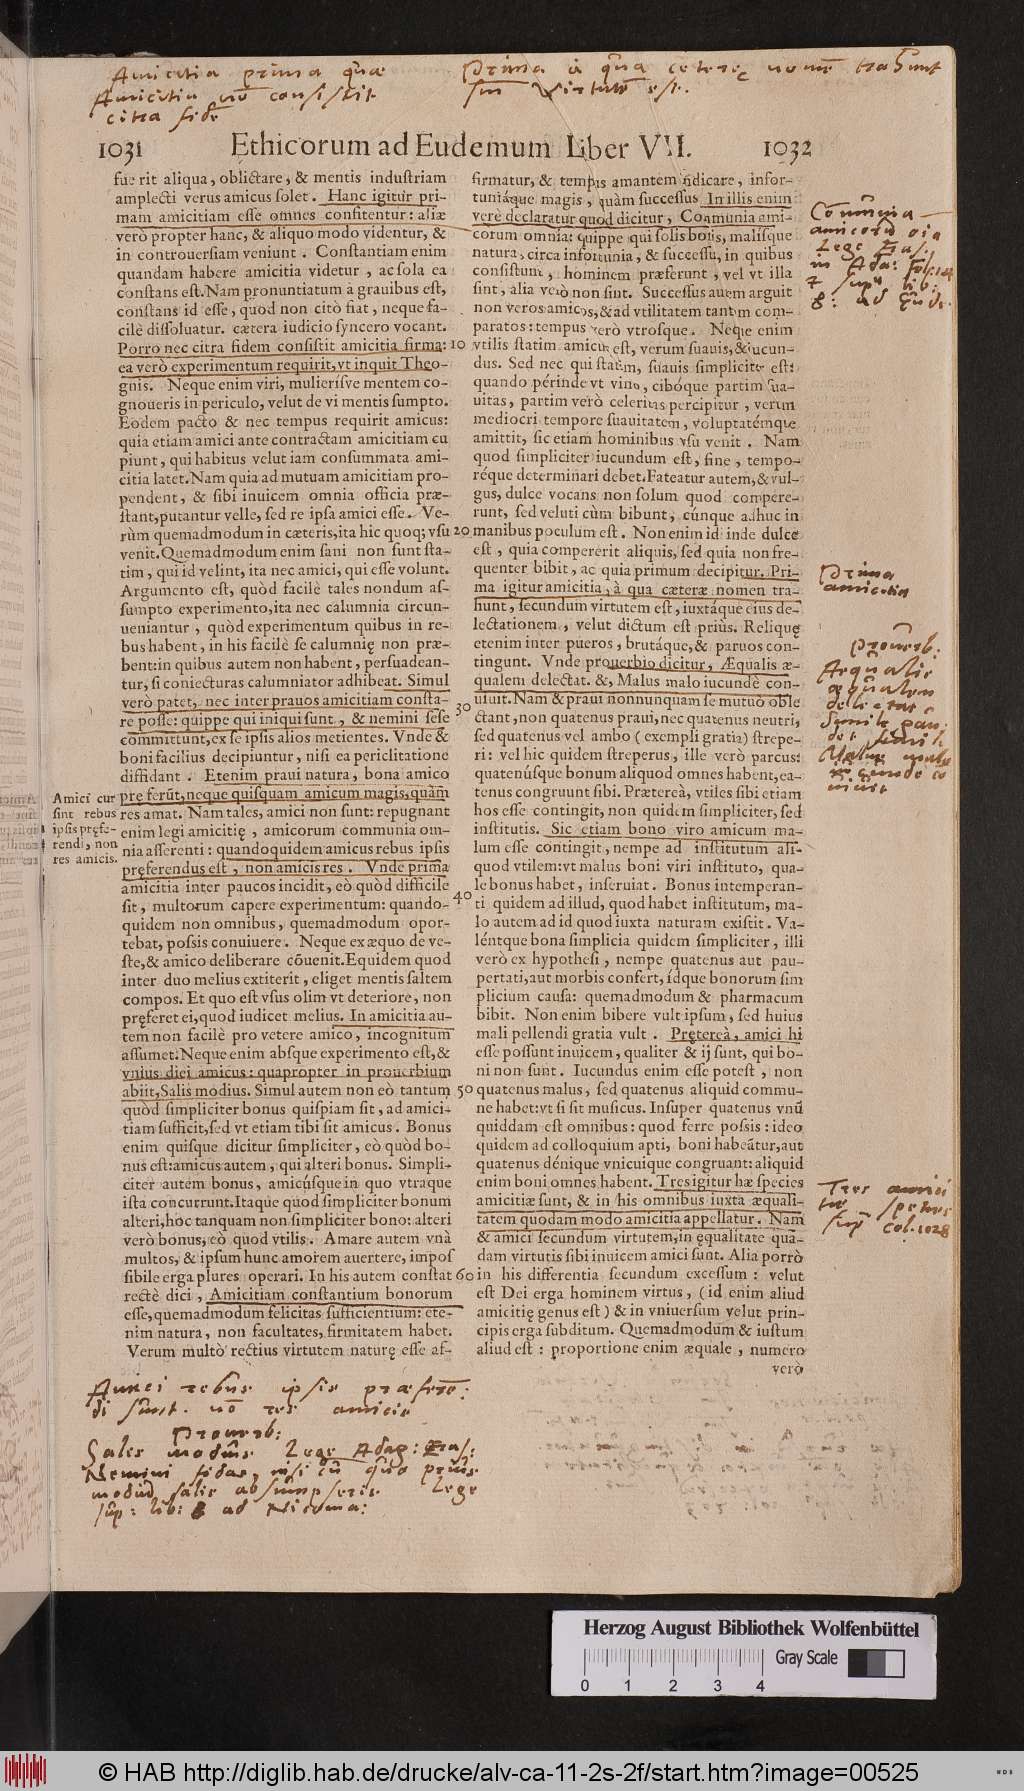 Amicitia prima quae
Amicitia nō consistit
citra fidē
Prima à qua ceterę nomē trahunt
sm̄ Virtutē est.
1031 Ethicorum ad Eudemum Liber VII. 1032
fue rit aliqua, oblictare, & mentis industriam
amplecti verus amicus solet. Hanc igitur pri-
mam amicitiam esse omnes confitentur: aliæ
verò propter hanc, & aliquo modo videntur, &
in controuersiam veniunt. Constantiam enim
quandam habere amicitia videtur, ac sola ea
constans est. Nam pronuntiatum à grauibus est,
constans id esse, quod non citò fiat, neque fa-
cilè dissoluatur. cætera iudicio syncero vocant.
Porro nec citra fidem consistit amicitia firma: 10
ea verò experimentum requirit, vt inquit Theo-
gnis. Neque enim viri, mulierisve mentem co-
gnoueris in periculo, velut de vi mentis sumpto.
Eodem pacto & nec tempus requirit amicus:
quia etiam amici ante contractam amicitiam cu
piunt, qui habitus velut iam consummata ami-
citia latet. Nam quia ad mutuam amicitiam pro-
pendent, & sibi inuicem omnia officia præ-
stant, putantur velle, sed re ipsa amici esse. Ve-
rùm quemadmodum in cæteris, ita hic quoq; vsu 20
venit. Quemadmodum enim sani non sunt sta-
tim, qui id velint, ita nec amici, qui esse volunt.
Argumento est, quòd facilè tales nondum as-
sumpto experimento, ita nec calumnia circun-
ueniantur, quòd experimentum quibus in re-
bus habent, in his facilè se calumnię non præ-
bent: in quibus autem non habent, persuadean-
tur, si coniecturas calumniator adhibeat. Simul
verò patet, nec inter prauos amicitiam consta-
re posse: quippe qui iniqui sunt, & nemini sese 30
committunt, ex se ipsis alios metientes. Vnde &
boni facilius decipiuntur, nisi ea periclitatione
diffidant. Etenim praui natura, bona amico
præferūt, neque quisquam amicum magis, quàm
res amat. Nam tales, amici non sunt: repugnant
enim legi amicitię, amicorum communia om-
nia asserenti: quandoquidem amicus rebus ipsis
pręferendus est, non amicis res. Vnde prima
amicitia inter paucos incidit, eò quòd difficile
sit, multorum capere experimentum: quando- 40
quidem non omnibus, quemadmodum opor-
tebat, possis conuiuere. Neque ex æquo de ve-
ste, & amico deliberare cōuenit. Equidem quod
inter duo melius extiterit, eliget mentis saltem
compos. Et quo est vsus olim vt deteriore, non
pręferet ei, quod iudicet melius. In amicitia au-
tem non facilè pro vetere amico, incognitum
assumet. Neque enim absque experimento est, &
vnius diei amicus: quapropter in prouerbium
abiit, Salis modius. Simul autem non eò tantum 50
quòd simpliciter bonus quispiam sit, ad amici-
tiam sufficit, sed vt etiam tibi sit amicus. Bonus
enim quisque dicitur simpliciter, eò quòd bo-
nus est: amicus autem, qui alteri bonus. Simpli-
citer autem bonus, amicúsque in quo vtraque
ista concurrunt. Itaque quod simpliciter bonum
alteri, hoc tanquam non simpliciter bono: alteri
verò bonus, eò quod vtilis. Amare autem vnà
multos, & ipsum hunc amorem auertere, impos
sibile erga plures operari. In his autem constat 60
rectè dici, Amicitiam constantium bonorum
esse, quemadmodum felicitas sufficientium: ete-
nim natura, non facultates, firmitatem habet.
Verum multò rectius virtutem naturę esse af-
Amici cur
sint rebus
ipsis pręfe-
rendi, non
res amicis.
firmatur, & tempus amantem indicare, infor-
tuniáque magis, quàm successus. In illis enim
verè declaratur quod dicitur, Communia ami-
corum omnia: quippe qui solis bonis, malisque
natura, circa infortunia, & successu, in quibus
consistunt, hominem præferunt, vel vt illa
sint, alia verò non sint. Successus autem arguit
non veros amicos, & ad vtilitatem tantum com-
paratos: tempus verò vtrosque. Neque enim
vtilis statim amicus est, verum suauis, & iucun-
dus. Sed nec qui statim, suauis simpliciter est:
quando périnde vt vino, cibóque partim sua-
uitas, partim verò celeritas percipitur, verum
mediocri tempore suauitatem, voluptatémque
amittit, sic etiam hominibus vsu venit. Nam
quod simpliciter iucundum est, fine, tempo-
réque determinari debet. Fateatur autem, & vul-
gus, dulce vocans non solum quod compere-
runt, sed veluti cùm bibunt, cúnque adhuc in
manibus poculum est. Non enim id inde dulce
est, quia compererit aliquis, sed quia non fre-
quenter bibit, ac quia primum decipitur. Pri-
ma igitur amicitia, à qua cæteræ nomen tra-
hunt, secundum virtutem est, iuxtáque eius de-
lectationem, velut dictum est priùs. Reliquę
etenim inter pueros, brutáque, & paruos con-
tingunt. Vnde prouerbio dicitur, Æqualis æ-
qualem delectat. &, Malus malo iucundè con-
uiuit. Nam & praui nonnunquam se mutuo oble
ctant, non quatenus praui, nec quatenus neutri,
sed quatenus vel ambo (exempli gratia) strepe-
ri: vel hic quidem streperus, ille verò parcus:
quatenúsque bonum aliquod omnes habent, ea-
tenus congruunt sibi. Prætereà, vtiles sibi etiam
hos esse contingit, non quidem simpliciter, sed
institutis. Sic etiam bono viro amicum ma-
lum esse contingit, nempe ad institutum ali-
quod vtilem: vt malus boni viri instituto, qua-
le bonus habet, inseruiat. Bonus intemperan-
ti quidem ad illud, quod habet institutum, ma-
lo autem ad id quod iuxta naturam existit. Va-
léntque bona simplicia quidem simpliciter, illi
verò ex hypothesi, nempe quatenus aut pau-
pertati, aut morbis confert, ídque bonorum sim
plicium causa: quemadmodum & pharmacum
bibit. Non enim bibere vult ipsum, sed huius
mali pellendi gratia vult. Pręterea, amici hi
esse possunt inuicem, qualiter & ij sunt, qui bo-
ni non sunt. Iucundus enim esse potest, non
quatenus malus, sed quatenus aliquid commu-
ne habet: vt si sit musicus. Insuper quatenus vnū
quiddam est omnibus: quod ferre possis: ideo
quidem ad colloquium apti, boni habeātur, aut
quatenus dénique vnicuique congruant: aliquid
enim boni omnes habent. Tres igitur hæ species
amicitiæ sunt, & in his omnibus iuxta æquali-
tatem quodam modo amicitia appellatur. Nam
& amici secundum virtutem, in ęqualitate qua-
dam virtutis sibi inuicem amici sunt. Alia porrò
in his differentia secundum excessum: velut
est Dei erga hominem virtus, (id enim aliud
amicitię genus est) & in vniuersum velut prin-
cipis erga subditum. Quemadmodum & iustum
aliud est: proportione enim æquale, numero
verò
Communia
amicorū oīa
Lege Eras:
in Ada: fol: 14
& supra lib:
8: ad
Prima
amicitia
Prouerb:
Aequalis
æqualem
delectat
Malus malo
Tres amici
tiæ species
sup̄ col. 1028
Amici rebus ipsis præferē:
di sunt. nō res amicis
Prouerb:
Salis modius Lege Adag: Eras:
Nemini fidas, nisi cū quo prius
modiū salis absumpseris Lege
sup: lib: 8 ad Nicoma:
Herzog August Bibliothek Wolfenbüttel
Gray Scale
0 1 2 3 4
© HAB http://diglib.hab.de/drucke/alv-ca-11-2s-2f/start.htm?image=00525